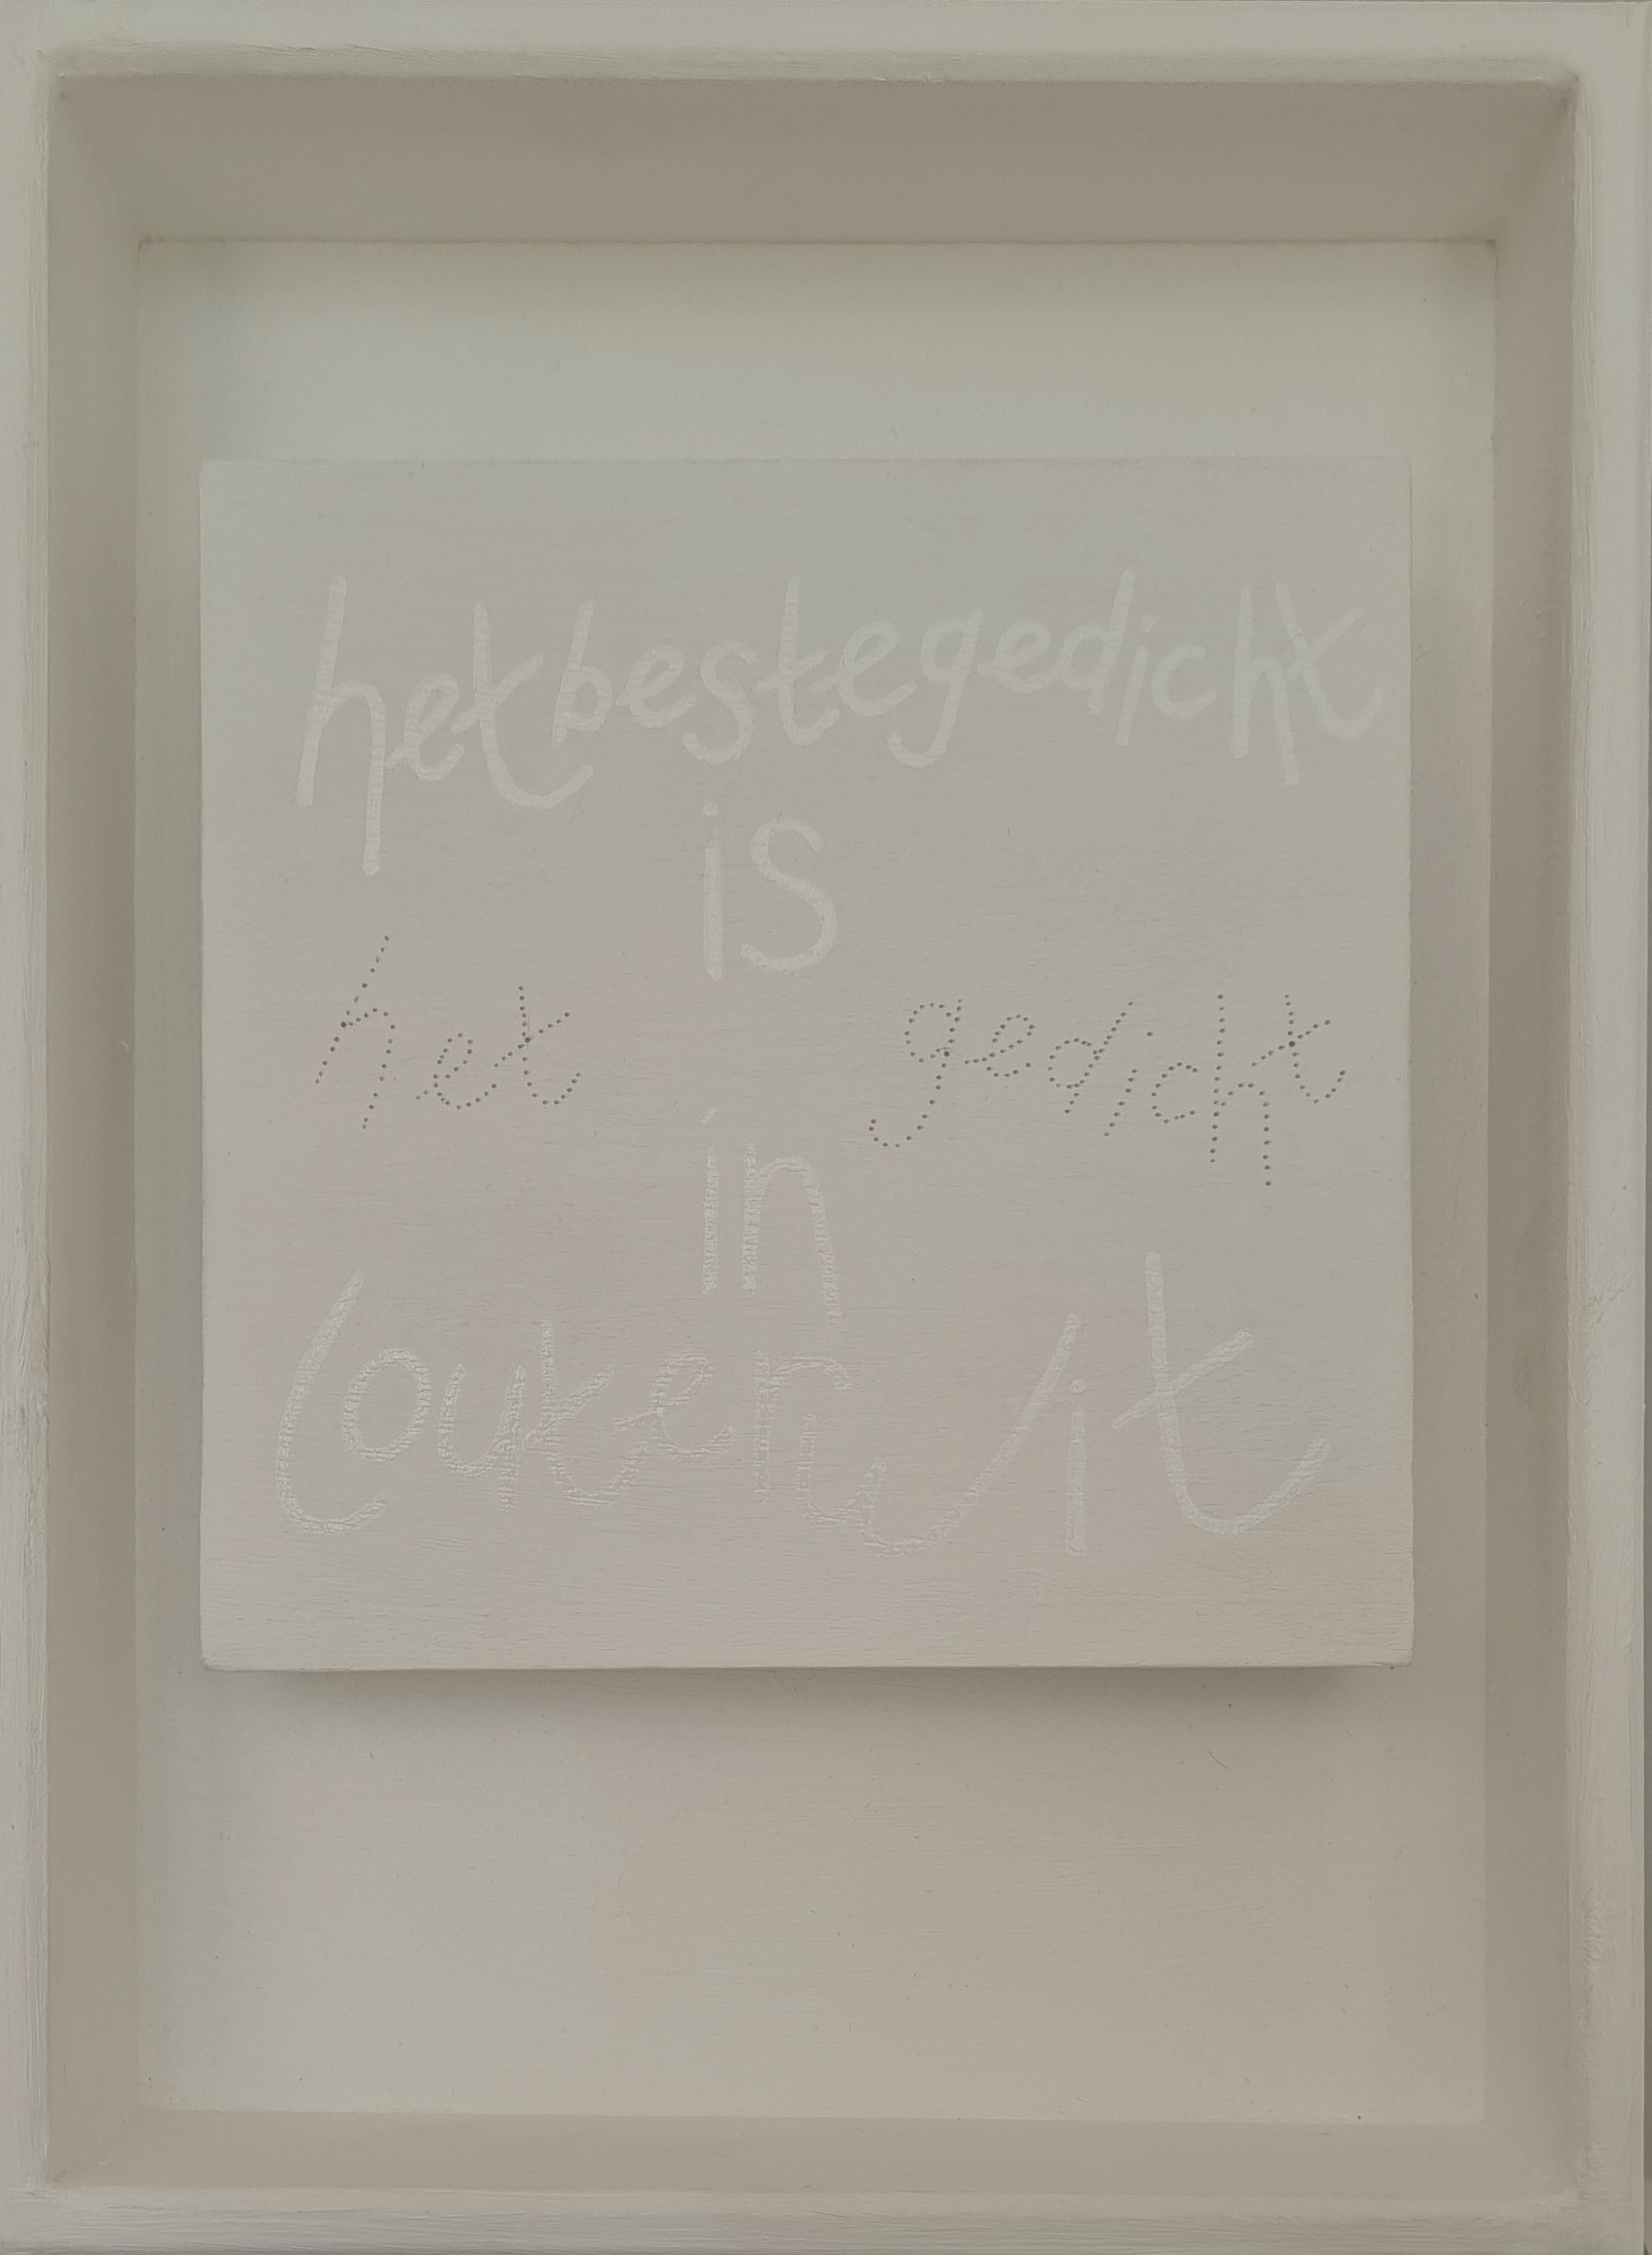 hetbestegedicht
is
het gedicht
in
louter wit